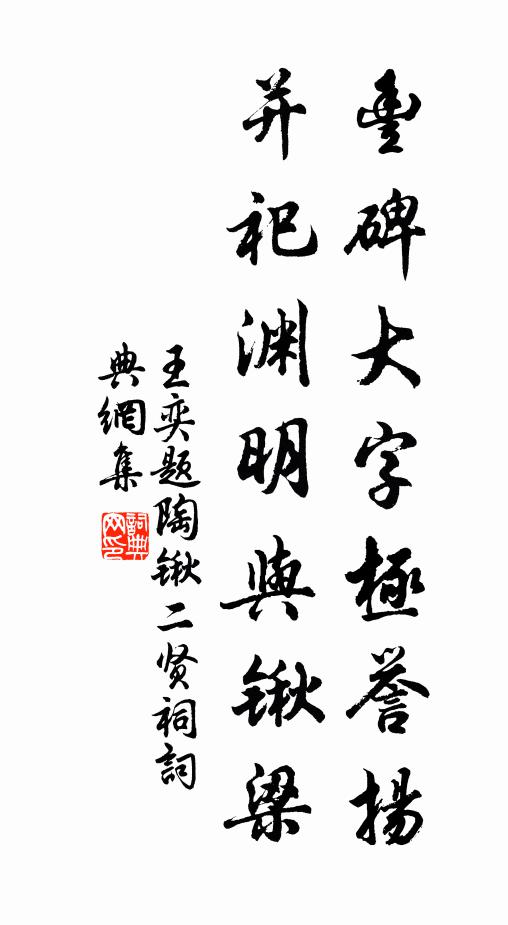 豐碑大字極譽揚
并祀渊明與锹梁
王奕题陶锹二贤祠詞
典網集
詞典
网印